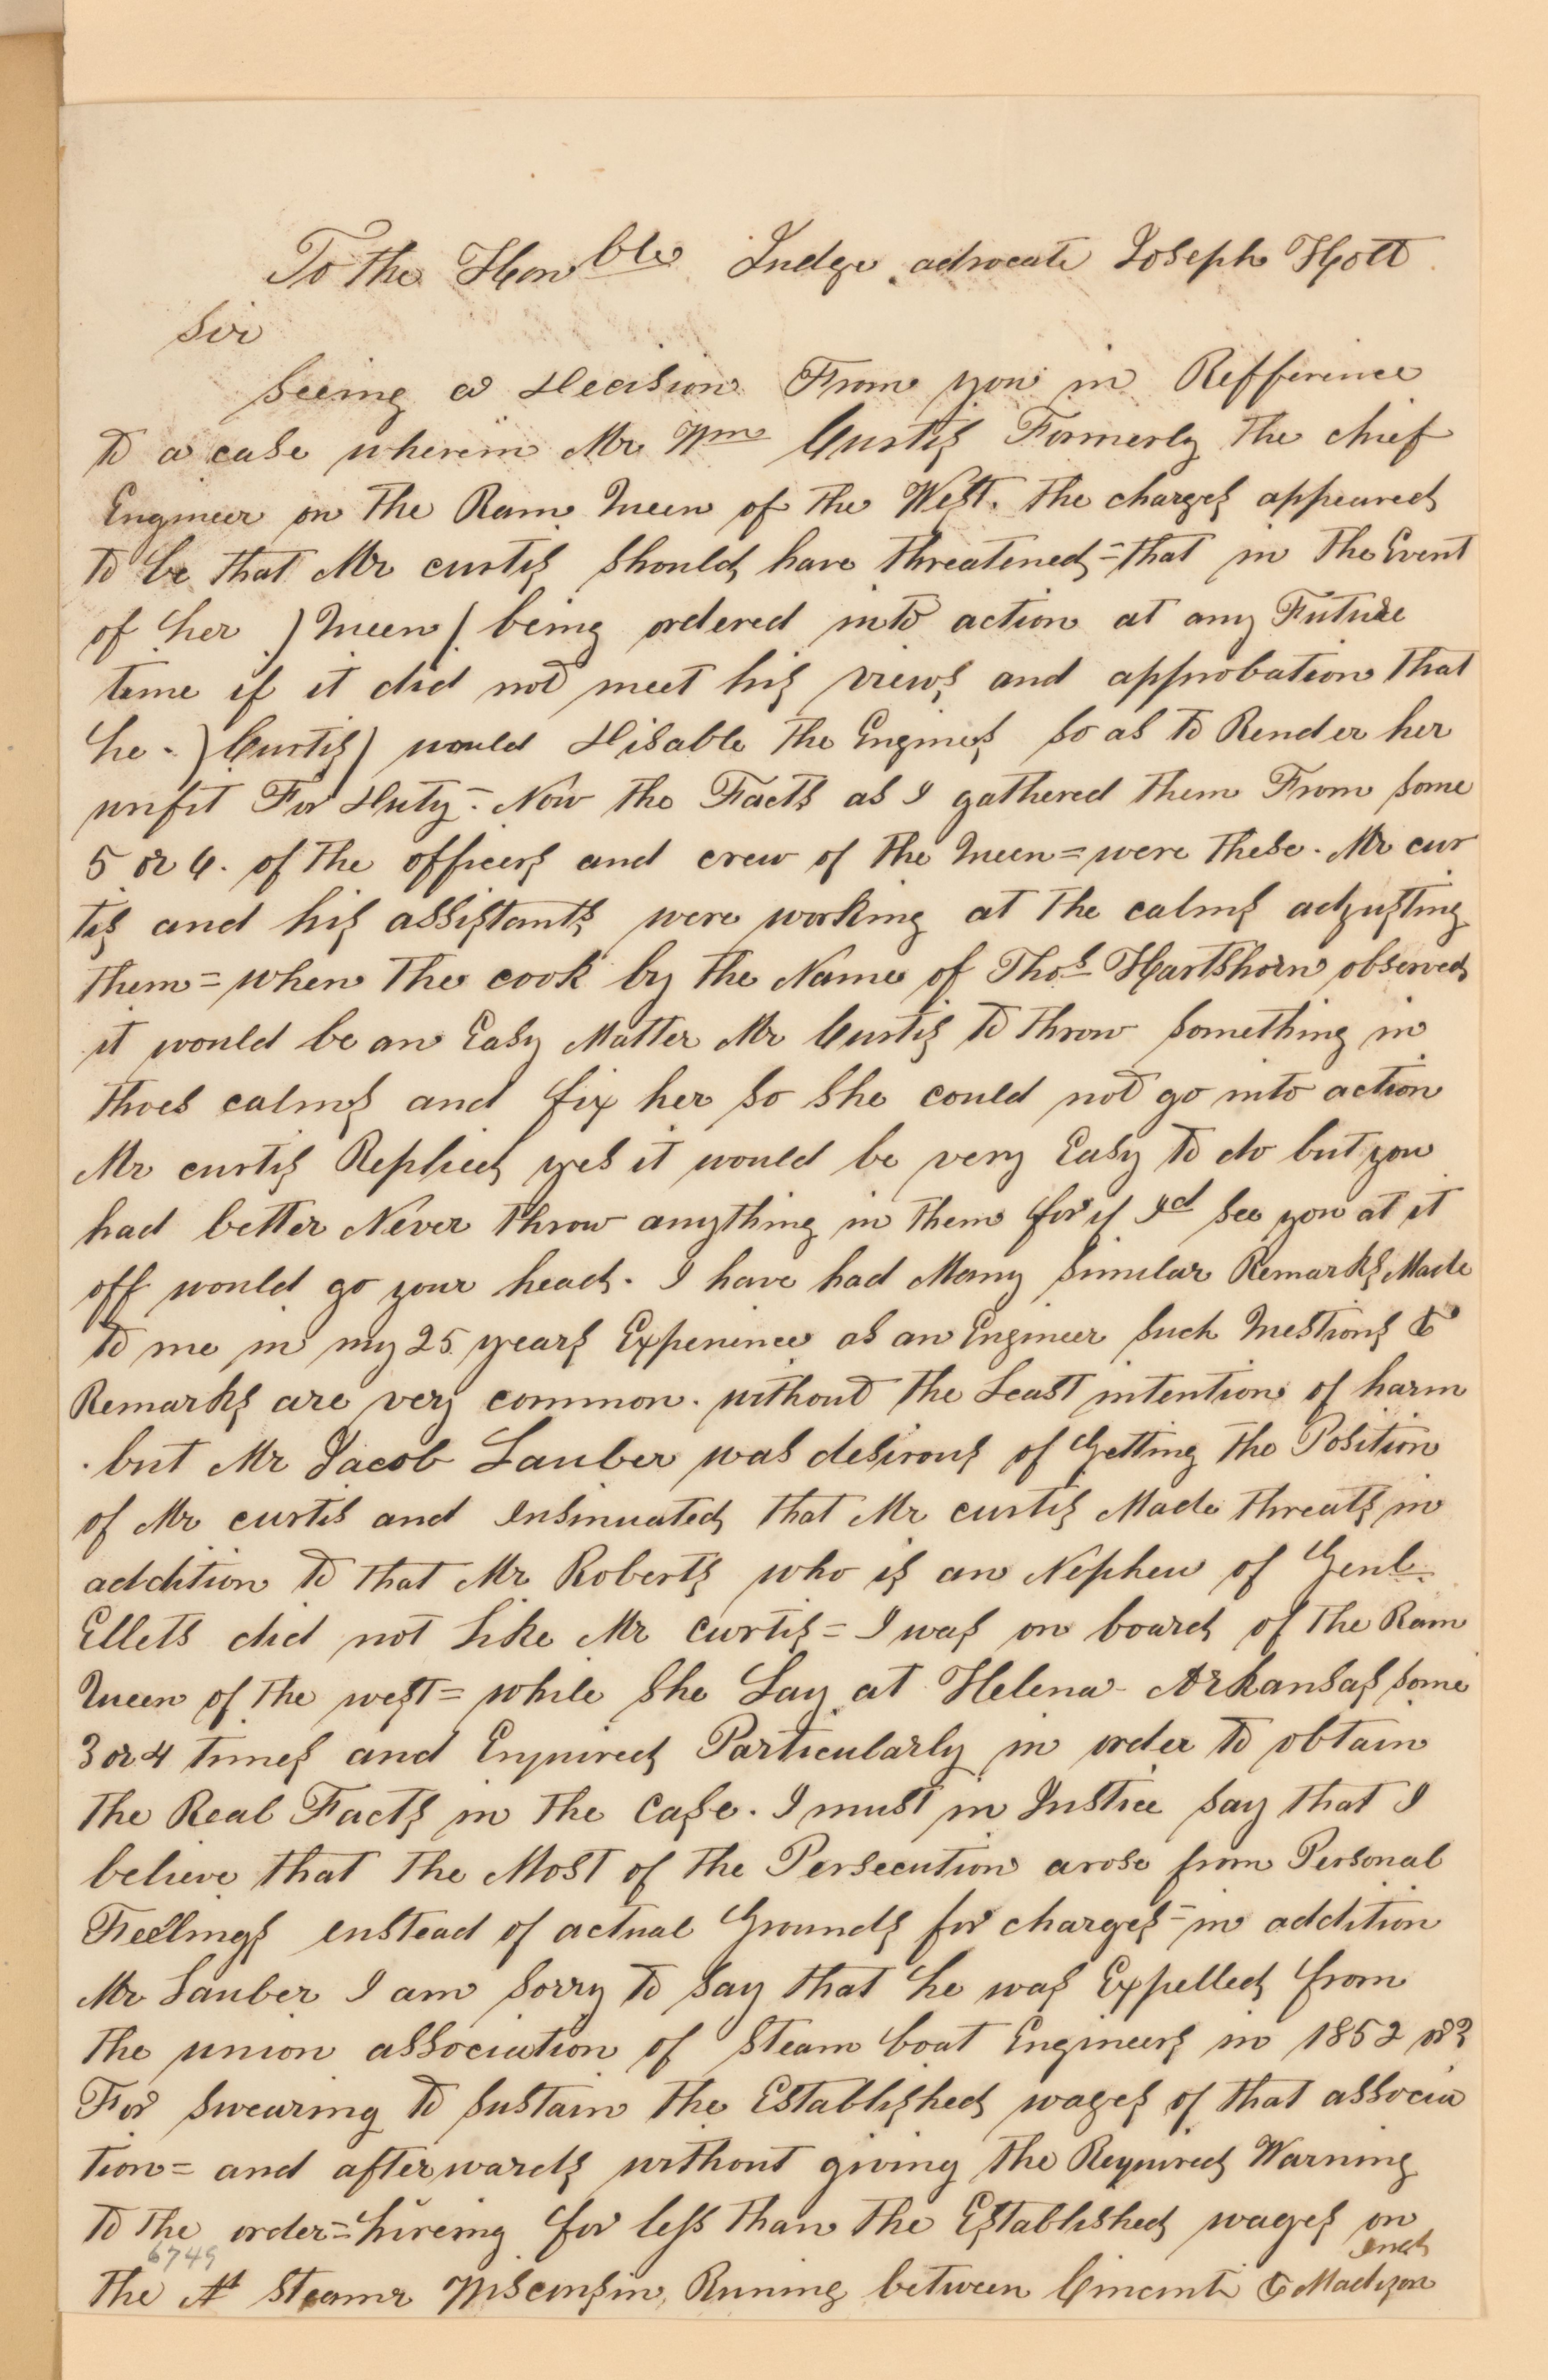 To the Honble Judge advocate Joseph Holt
Sir
Seeing a Decision From you in Refference
to a case wherein Mr Wm Curtis Formerly the chief
Engineer on the Ram Queen of the West. the charges appeared
to be that Mr curtis should have threatened = that in the Event
of her ) Queen ( being ordered into action at any Future
time if it did not meet his views and approbation that
he - ) Curtis ) would Disable the Engines so as to Render her
unfit For Duty = Now the Facts as I gathered them From some
5 or 6. of the officers and crew of the Queen = were these. Mr cur
tis and his assistants were working at the calms adjusting
them = when the cook by the Name of Thos Hartshorn observed
it would be an Easy Matter Mr Curtis to throw something in
thoes calms and fix her so she could not go into action
Mr curtis Replied yes it would be very Easy to do but you
had better Never throw anything in them for if Id see you at it
off would go your head. I have had Many similar Remarks Made
to me in my 25 years Experience as an Engineer such Questions &
Remarks are very common. without the Least intention of harm
. but Mr Jacob Lauber was desirous of Getting the Position
of Mr curtis and Insinuated that Mr curtis Made threats in
addition to that Mr Roberts who is an Nephew of Genl.
Ellets did not Like Mr Curtis = I was on board of the Ram
Queen of the west = while she Lay at Helena - Arkansas some
3 or 4 times and Enquired Particularly in order to obtain
the Real Facts in the Case. I must in Justice say that I
believe that the Most of the Persecution arose from Personal
Feelings enstead of actual Grounds for charges = in addition
Mr Lauber I am sorry to say that he was Expelled from
the union association of steam boat Engineers in 1852 or 3
For swearing to sustain the Established wages of that associa
tion = and afterwards without giving the Required Warning
to the order = hireing for less than the Established wages on
6749
the St Steamr Wisconsin, Runing between Cincinti & Madison